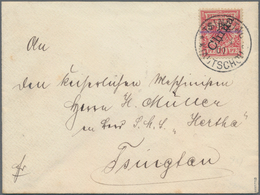 China
An
den Kaiserlichen Maschinisten
Herrn K. Müller
an Bord S.M.S. "Hertha"
Tsingtau